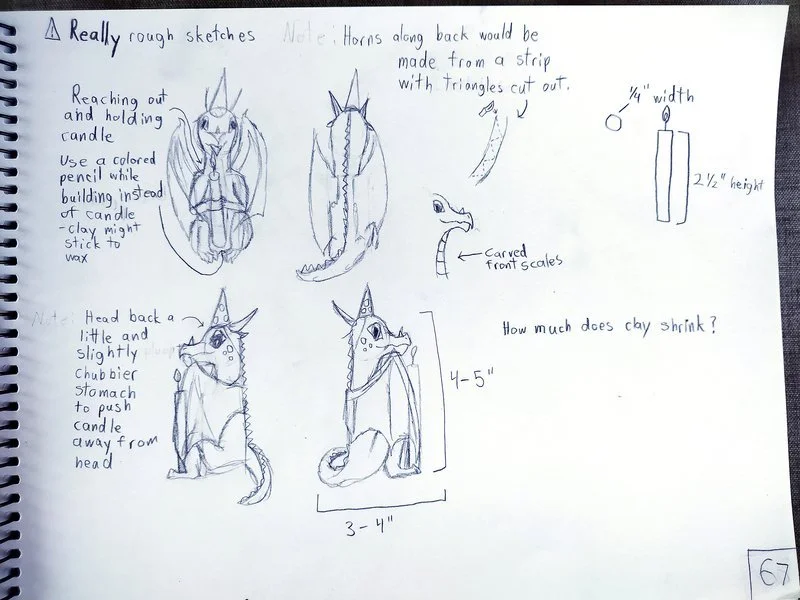 ⚠ Really rough sketches
Note: Horns along back would be
made from a strip
with triangles cut out.
Reaching out
and holding
candle
Use a colored
pencil while
building instead
of candle
- clay might
stick to
wax
1/4" width
2 1/2" height
Carved
front scales
Note: Head back a
little and
slightly
chubbier
stomach
to push
candle
away from
head
How much does clay shrink?
4-5"
3-4"
67